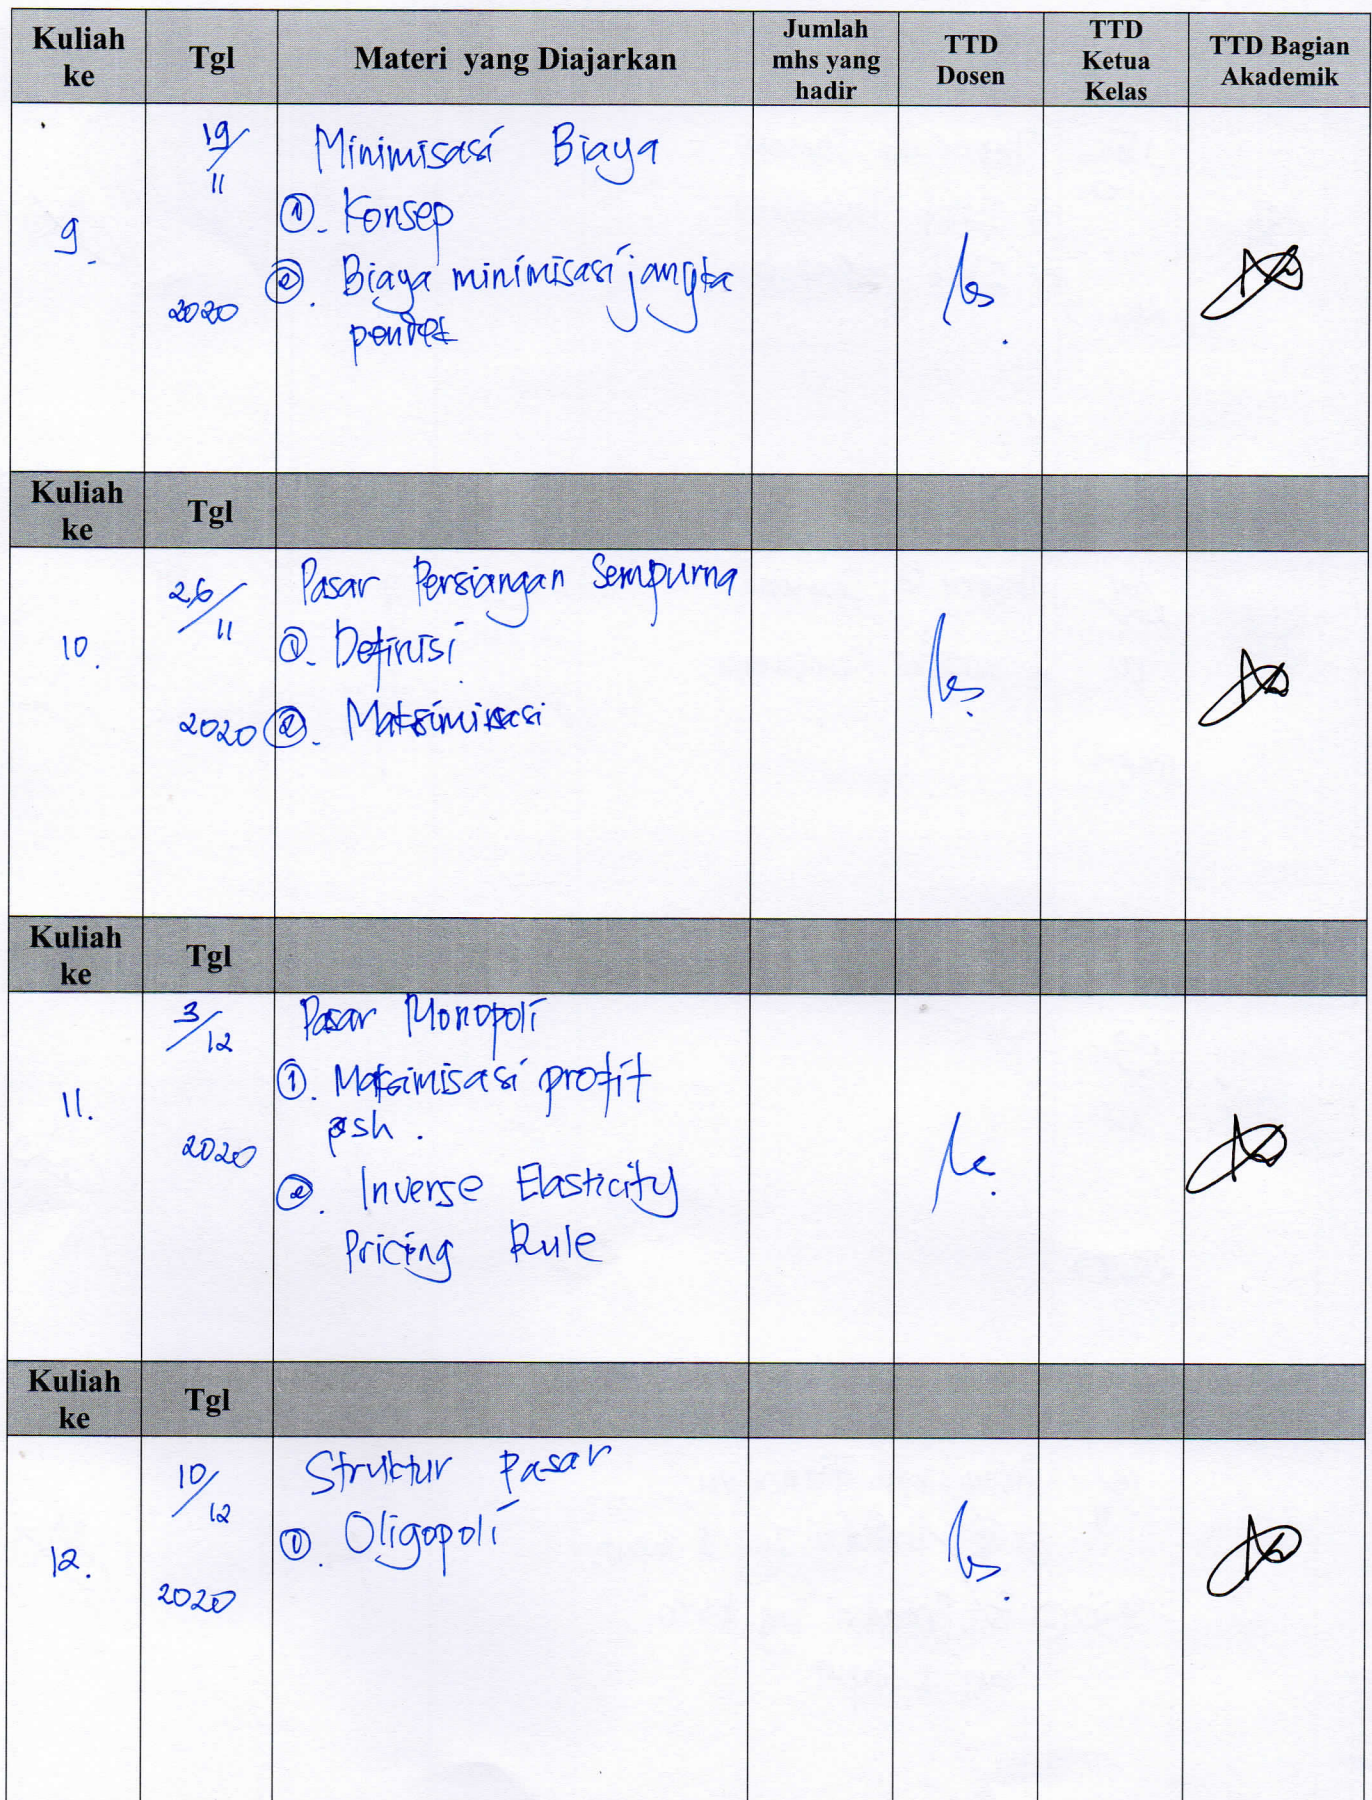 Kuliah ke Tgl Materi yang Diajarkan Jumlah mhs yang hadir TTD Dosen TTD Ketua Kelas TTD Bagian Akademik
9. 19/11 2020
Minimisasi Biaya
①. Konsep
②. Biaya minimisasi jangka
pendek
Kuliah ke Tgl
10. 26/11 2020
Pasar Persiangan Sempurna
①. Definisi
②. Maksimisasi
Kuliah ke Tgl
11. 3/12 2020
Pasar Monopoli
①. Maksimisasi profit
psh.
②. Inverse Elasticity
Pricing Rule
Kuliah ke Tgl
12. 10/12 2020
Struktur Pasar
①. Oligopoli